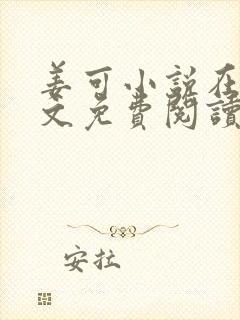 姜可小说在
文免費閱讀
安拉